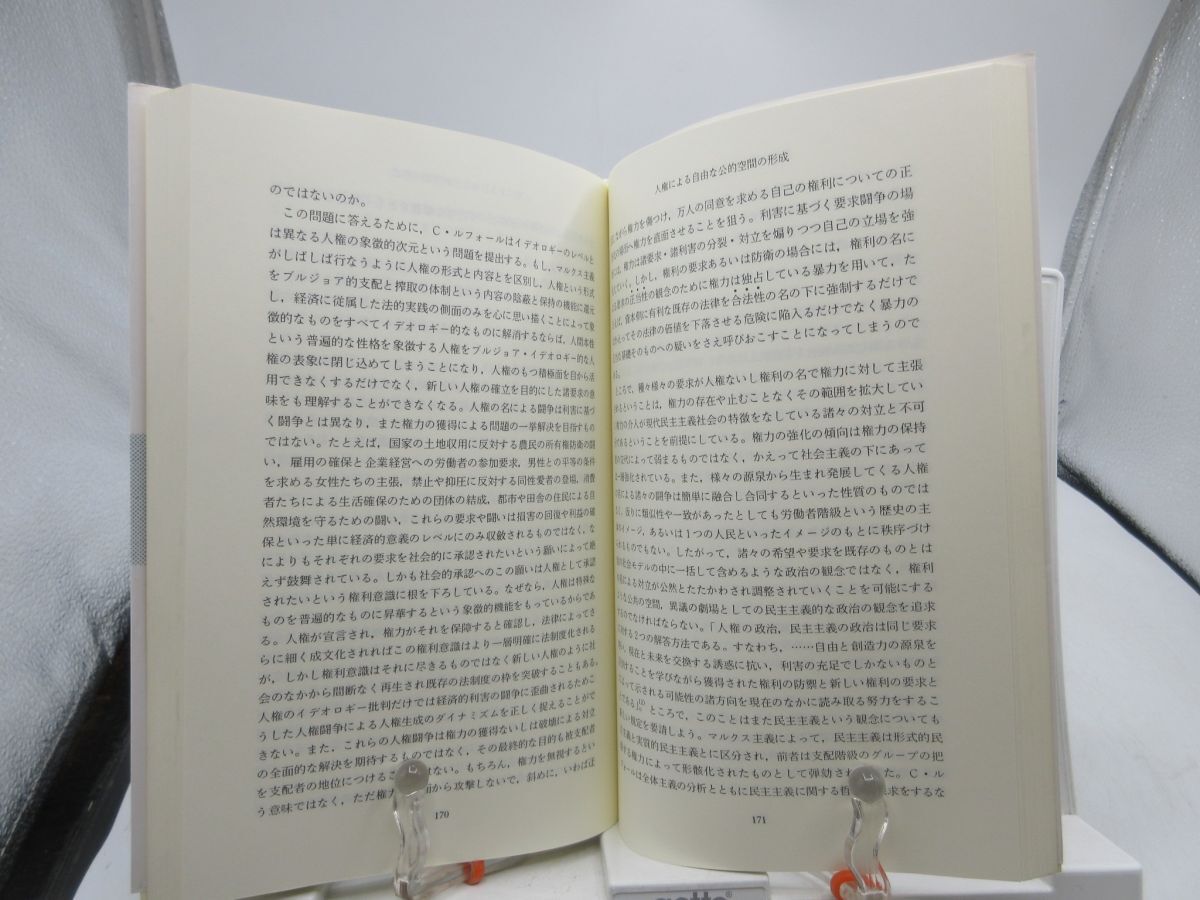 のではないのか。
この問題に答えるために，C・ルフォールはイデオロギーのレベルと
は異なる人権の象徴的次元という問題を提出する。もし，マルクス主義
がしばしば行なうように人権の形式と内容とを区別し，人権という形式
をブルジョア的支配と搾取の体制という内容の陰蔽と保持の機能に還元
し，経済に従属した法的実践の側面のみを心に思い描くことによって象
徴的なものをすべてイデオロギー的なものに解消するならば，人間本性
という普遍的な性格を象徴する人権をブルジョア・イデオロギー的な人
権の表象に閉じ込めてしまうことになり，人権のもつ積極面を自から活
用できなくするだけでなく，新しい人権の確立を目的にした諸要求の意
味をも理解することができなくなる。人権の名による闘争は利害に基づ
く闘争とは異なり，また権力の獲得による問題の一挙解決を目指すもの
ではない。たとえば，国家の土地収用に反対する農民の所有権防衛の闘
い，雇用の確保と企業経営への労働者の参加要求，男性との平等の条件
を求める女性たちの主張，禁止や抑圧に反対する同性愛者の登場，消費
者たちによる生活確保のための団体の結成，都市や田舎の住民による自
然環境を守るための闘い，これらの要求や闘いは損害の回復や利益の確
保といった単に経済的意義のレベルにのみ収斂されるものではなく，な
によりもそれぞれの要求を社会的に承認されたいという願いによって絶
えず鼓舞されている。しかも社会的承認へのこの願いは人権として承認
されたいという権利意識に根を下ろしている。なぜなら，人権は特殊な
ものを普遍的なものに昇華するという象徴的機能をもっているからであ
る。人権が宣言され，権力がそれを保障すると確認し，法律によってさ
らに細く成文化されればこの権利意識はより一層明確に法制度化される
が，しかし権利意識はそれに尽きるものではなく新しい人権のように社
会のなかから間断なく再生され既存の法制度の枠を突破することもある。
人権のイデオロギー批判だけでは経済的利害の闘争に歪曲されるためこ
うした人権闘争による人権生成のダイナミズムを正しく捉えることがで
きない。また，これらの人権闘争は権力の獲得ないしは破壊による対立
の全面的な解決を期待するものではなく，その最終的な目的も被支配者
を支配者の地位につけるこ　　はない。もちろん，権力を無視するとい
う意味ではなく，ただ権力　　面から攻撃しないで，斜めに，いわば迂
170
人権による自由な公的空間の形成
から権力を傷つけ，万人の同意を求める自己の権利についての正
へ権力を直面させることを狙う。利害に基づく要求闘争の場
は，権力は諸要求・諸利害の分裂・対立を煽りつつ自己の立場を強
ていく。しかし，権利の要求あるいは防衛の場合には，権利の名に
要求の正当性の観念のために権力は独占している暴力を用いて，た
えば，資本側に有利な既存の法律を合法性の名の下に強制するだけで
かえってその法律の価値を下落させる危険に陥入るだけでなく暴力の
の基礎そのものへの疑いをさえ呼びおこすことになってしまうので
る。
ところで，種々様々の要求が人権ないし権利の名で権力に対して主張
れるということは，権力の存在や止むことなくその範囲を拡大してい
権力の介入が現代民主主義社会の特徴をなしている諸々の対立と不可
であるということを前提にしている。権力の強化の傾向は権力の保持
の交代によって弱まるものではなく，かえって社会主義の下にあって
一層強化されている。また，様々の源泉から生まれ発展してくる人権
による諸々の闘争は簡単に融合し合同するといった性質のものでは
く，仮りに類似性や一致があったとしても労働者階級という歴史の主
のイメージ，あるいは1つの人民といったイメージのもとに秩序づけ
れるものでもない。したがって，諸々の希望や要求を既存のものとは
の社会モデルの中に一括して含めるような政治の観念ではなく，権利
による対立が公然とたたかわされ調整されていくことを可能にする
ような公共の空間，異議の劇場としての民主主義的な政治の観念を追求
するのでなければならない。「人権の政治，民主主義の政治は同じ要求
に対する2つの解答方法である。すなわち，……自由と創造力の源泉を
，現在と未来を交換する誘惑に抗い，利害の充足でしかないものと
することを学びながら獲得された権利の防禦と新しい権利の要求と
によって示される可能性の諸方向を現在のなかに読み取る努力をするこ
である」 ところで，このことはまた民主主義という観念についても
しい規定を要請しよう。マルクス主義によって，民主主義は形式的民
主義と実質的民主主義とに区分され，前者は支配階級のグループの把
する権力によって形骸化されたものとして弾劾され　た。C・ル
ォールは全体主義の分析とともに民主主義に関する哲　　求をするな
171